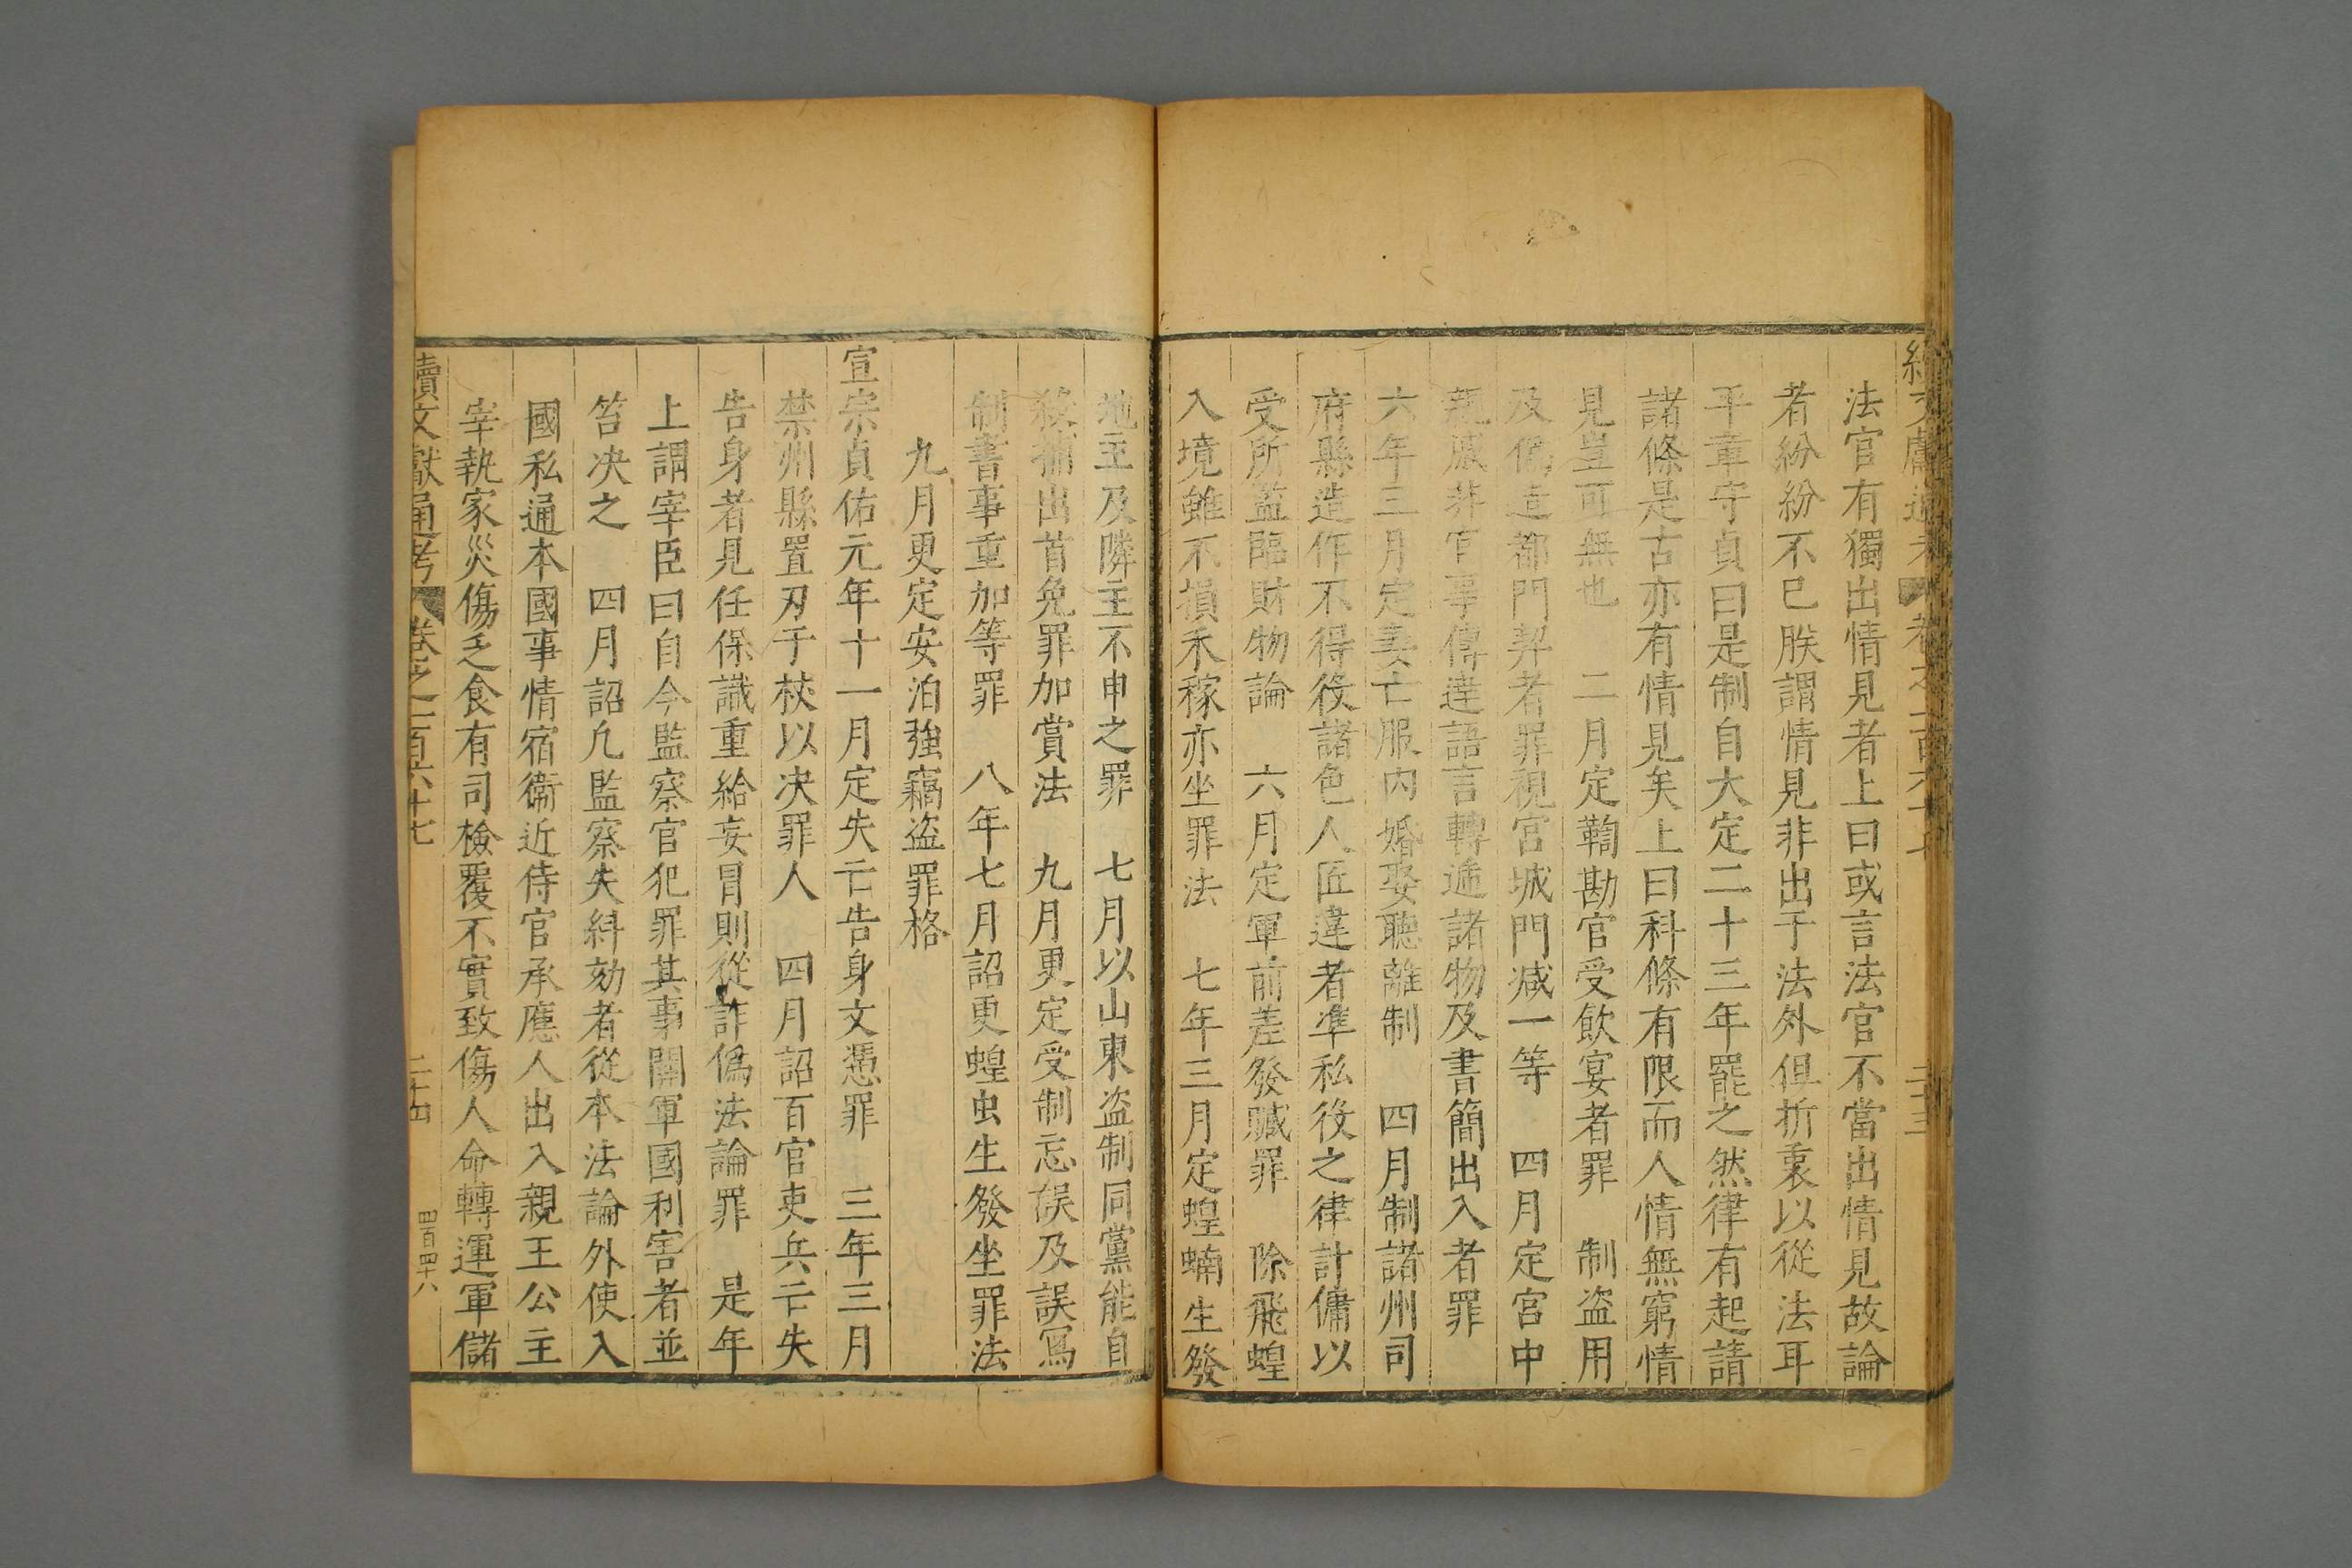 法官有獨出情見者上曰或言法官不當出情見故論
者紛紛不已朕謂情見非出于法外但折衷以從法耳
平章守貞曰是制自大定二十三年罷之然律有起請
諸條是古亦有情見矣上曰科條有限而人情無窮情
見豈可無也　二月定鞫勘官受飲宴者罪　制盜用
及僞造都門契者罪視宮城門減一等　四月定宮中
親戚非官事傳達語言轉遞諸物及書簡出入者罪
六年三月定妻亡服內婚娶聽離制　四月制諸州司
府縣造作不得役諸色人匠違者準私役之律計傭以
受所監臨財物論　六月定軍前差發贓罪　除飛蝗
入境雖不損禾稼亦坐罪法　七年三月定蝗蝻生發
地主及隣主不申之罪　七月以山東盜制同黨能自
殺捕出首免罪加賞法　九月更定受制忘誤及誤寫
制書事重加等罪　八年七月詔更蝗虫生發坐罪法
九月更定安泊強竊盜罪格
宣宗貞佑元年十一月定失亡告身文憑罪　三年三月
禁州縣置刃于杖以决罪人　四月詔百官吏兵亡失
告身者見任保識重給妄冒則從詐僞法論罪　是年
上謂宰臣曰自今監察官犯罪其事關軍國利害者並
笞决之　四月詔凢監察失糾劾者從本法論外使入
國私通本國事情宿衞近侍官承應人出入親王公主
宰執家災傷乏食有司檢覆不實致傷人命轉運軍儲
續文獻通考　卷之一百六十七　二十四　四百四十八